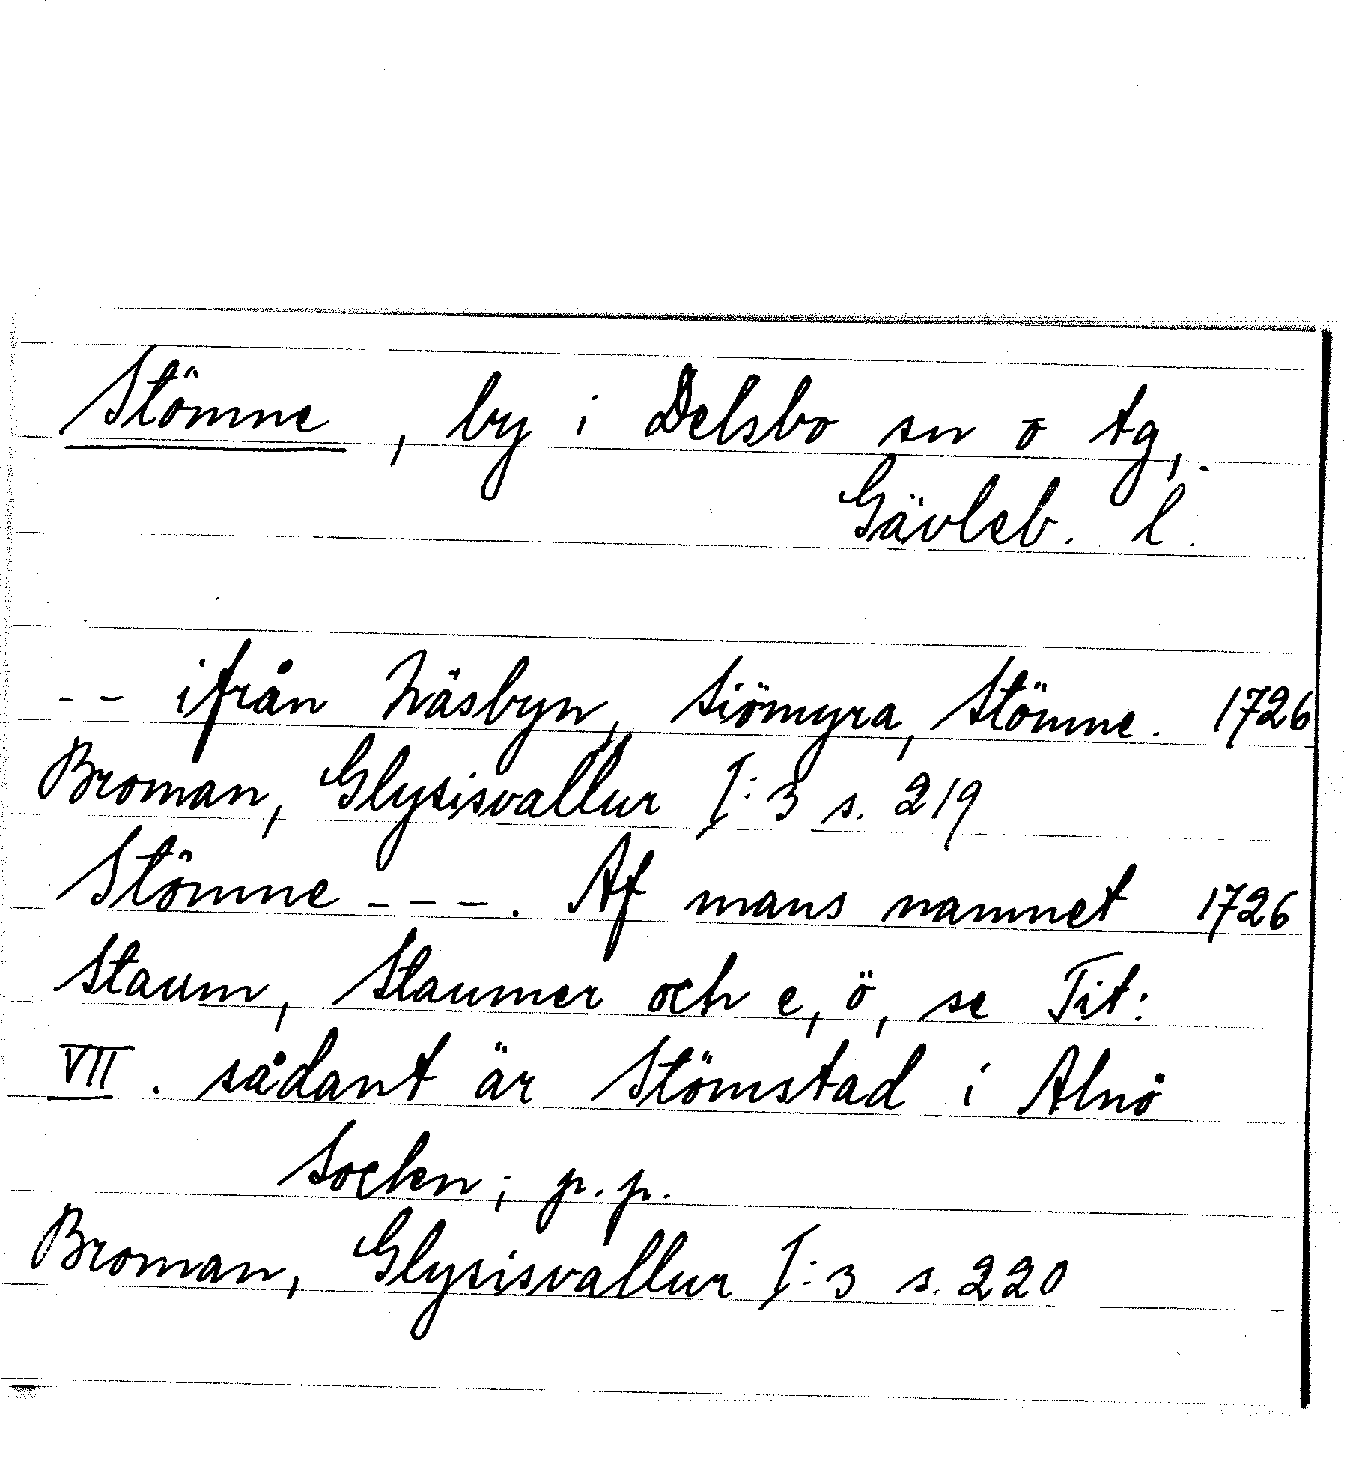 Stömne, by i Delsbo sn o tg,
Gävleb. l.
-- ifrån Näsbyn, Siömyra, Stömne. 1726
Broman, Glysisvallur I:3 s. 219
Stömne ---. Af mans namnet 1726
Staum, Staumer och e, ö, se Tit:
VII. sådant är Stömstad i Alnö
Socken; p.p.
Broman, Glysisvallur I:3 s. 220